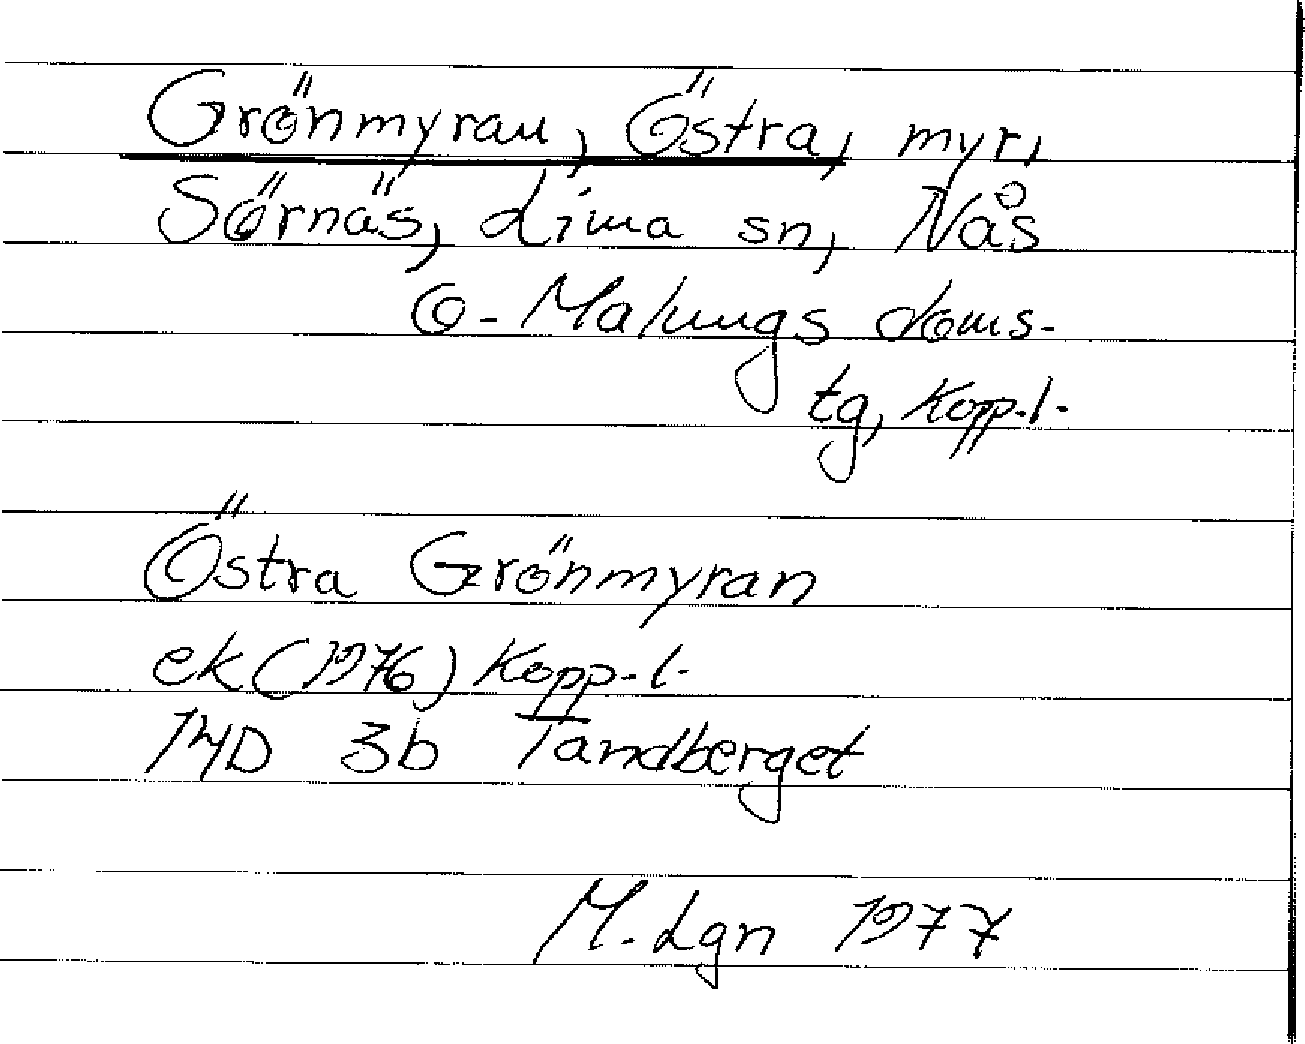 Grönmyran, Östra, myr,
Sörnäs, Lima sn, Nås
o- Malungs doms-
tg, Kopp.l.
Östra Grönmyran
ek (1976) Kopp.l.
14D 3b Tandberget
M. Lgn 1977